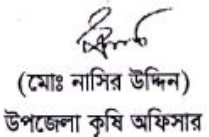 (মোঃ নাসির উদ্দিন)
উপজেলা কৃষি অফিসার